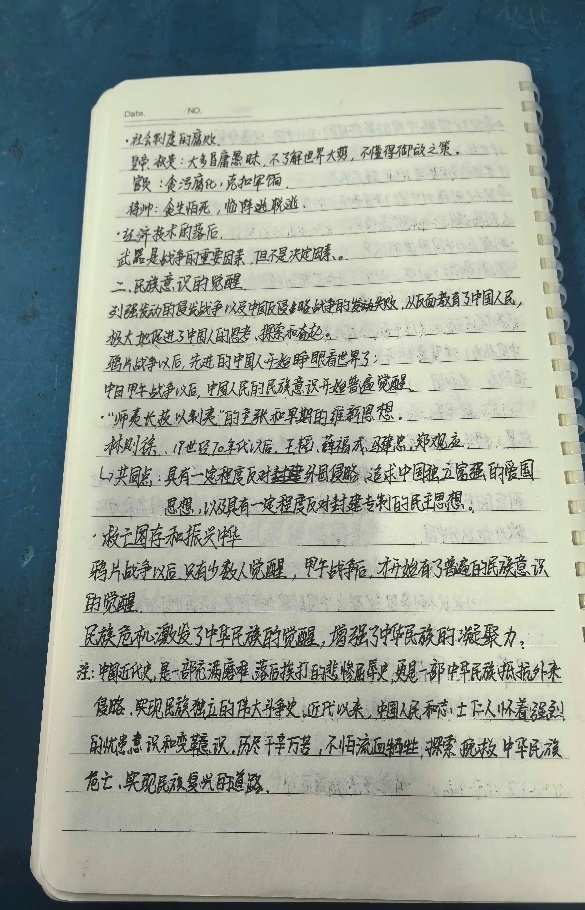 Date. NO.
·社会制度的腐败.
皇帝、权贵:大多昏庸愚昧、不了解世界大势,不懂得御敌之策。
官吏:贪污腐化,克扣军饷.
将帅:贪生怕死,临阵逃脱.
·经济技术的落后.
武器是战争的重要因素,但不是决定因素。
二、民族意识的觉醒
列强发动的侵略战争以及中国反侵略战争的失败,从反面教育了中国人民,
极大地促进了中国人的思考、探索和奋起.
鸦片战争以后,先进的中国人开始睁眼看世界了;
中日甲午战争以后,中国人民的民族意识开始普遍觉醒.
·"师夷长技以制夷"的主张和早期的维新思想.
林则徐、19世纪70年代以后,王韬、薛福成、马建忠、郑观应.
↳共同点:具有一定程度反对外国侵略、追求中国独立富强的爱国
思想,以及具有一定程度反对封建专制的民主思想。
·救亡图存和振兴中华
鸦片战争以后,只有少数人觉醒,甲午战争后,才开始有了普遍的民族意识
的觉醒.
民族危机激发了中华民族的觉醒,增强了中华民族的凝聚力.
注:中国近代史,是一部充满磨难、落后挨打的悲惨屈辱史,更是一部中华民族抵抗外来
侵略、实现民族独立的伟大斗争史.近代以来,中国人民和志士仁人怀着强烈
的忧患意识和变革意识,历尽千辛万苦,不怕流血牺牲,探索挽救中华民族
危亡、实现民族复兴的道路.